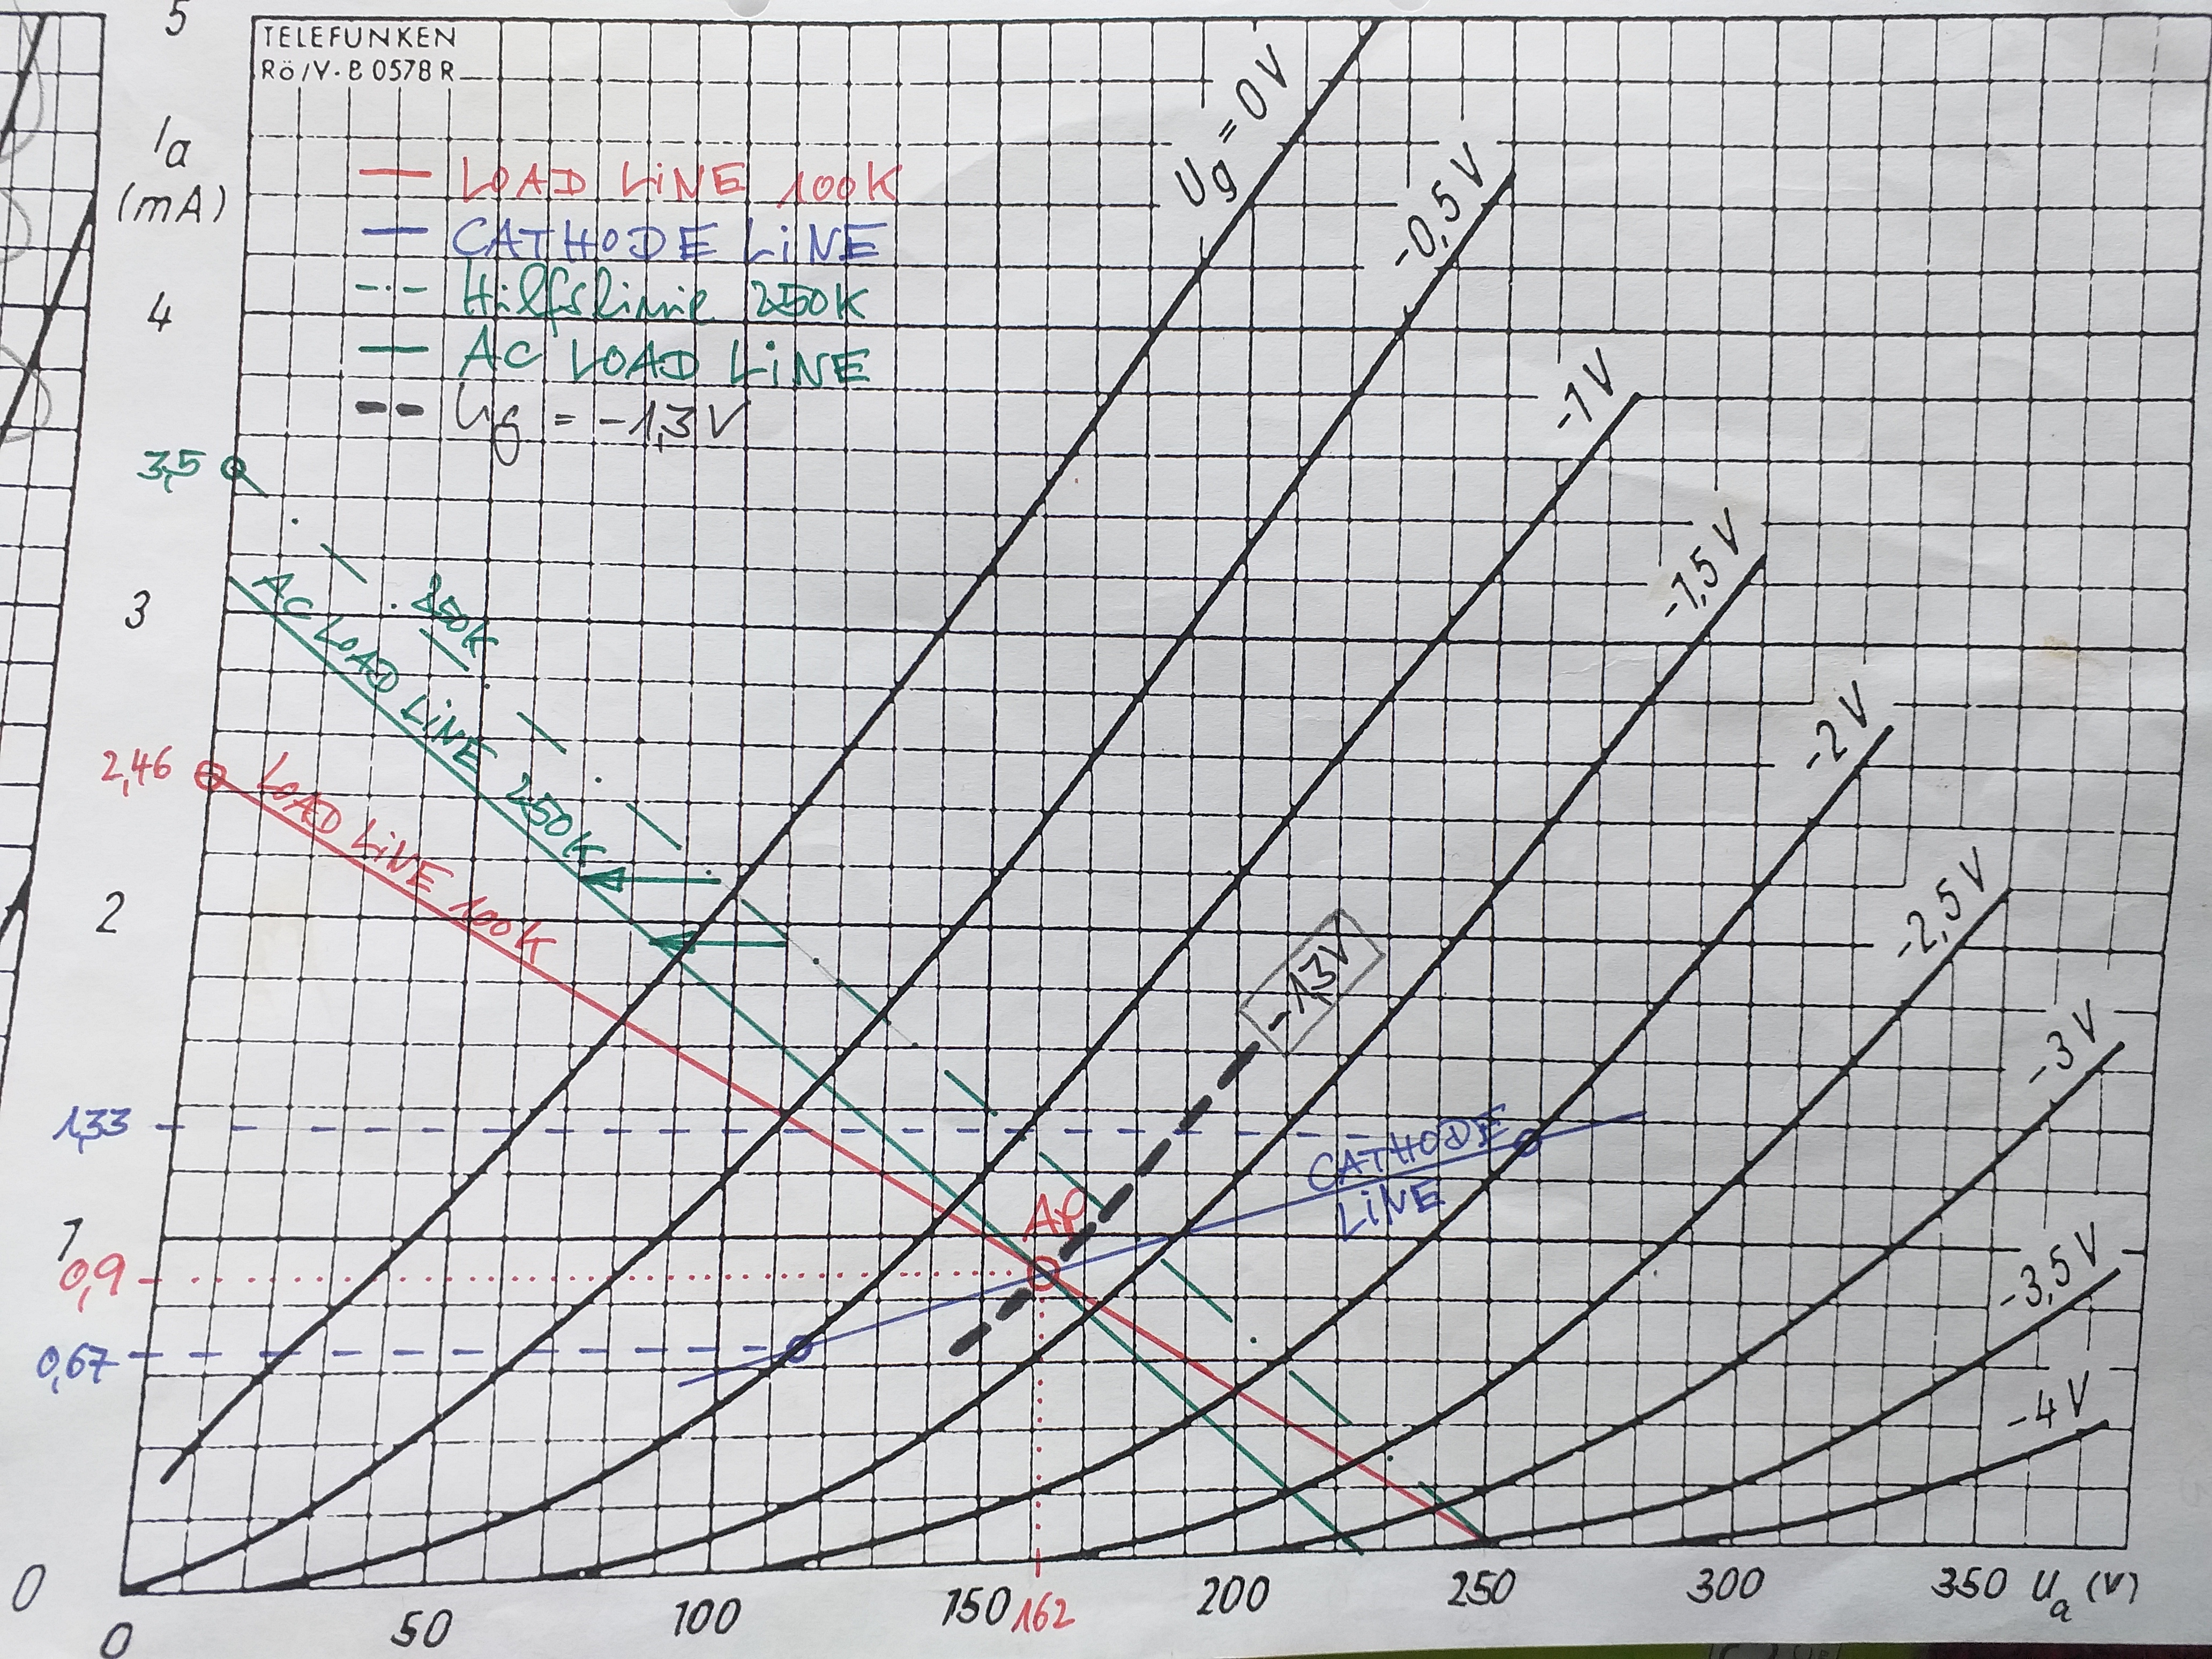 TELEFUNKEN
Rö/V·B 0578 R
5
Ia
(mA)
4
3,5
3
2,46
2
1,33
1
0,9
0,67
0
LOAD LiNE 100K
CATHODE LiNE
Hilfslinie 250K
AC LOAD LiNE
Ug = -1,3 V
Ug = 0V
-0,5 V
-1 V
-1,5 V
-2 V
-2,5 V
-3 V
-3,5 V
-4 V
250K
AC LOAD LiNE 250K
LOAD LiNE 100K
-1,3V
AP
CATHODE
LiNE
0
50
100
150
162
200
250
300
350
Ua (V)